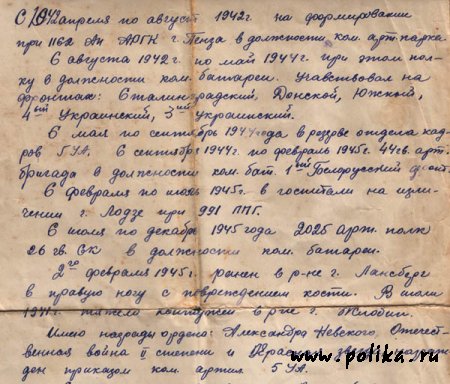 С 10/4 апреля по август 1942г. на формировании
при 1162 Ап АРГК г. Пенза в должности ком. арт. парка.
С августа 1942г. по май 1944г при этом пол-
ку в должности ком. баттареи. Учавствовал на
фронтах: Сталинградский, Донской, Южный,
4ый Украинский, 3ий Украинский.
С мая по сентябрь 1944 года в резерве отдела кад-
ров 5 УА. С сентября 1944г. по февраль 1945г. 44 гв. арт.
бригада в должности ком. бат. 1ый Белорусский фронт.
С февраля по июль 1945г. в госпитали на изле-
чении г. Лодзе при 991 ППГ.
С июля по декабрь 1945 года 2025 Арт. полк
26 гв. СК в должности ком. батареи.
2го февраля 1945г. ранен в р-не г. Лансберг
в правую ногу с повреждением кости. В июле
1941г. тяжело контужен в р-не г. Жлобин.
Имею награды ордена: Александра Невского, Отечест-
венная война II степени и Красная Звезда награж-
ден приказом ком. артил. 5 УА.
www.polika.ru